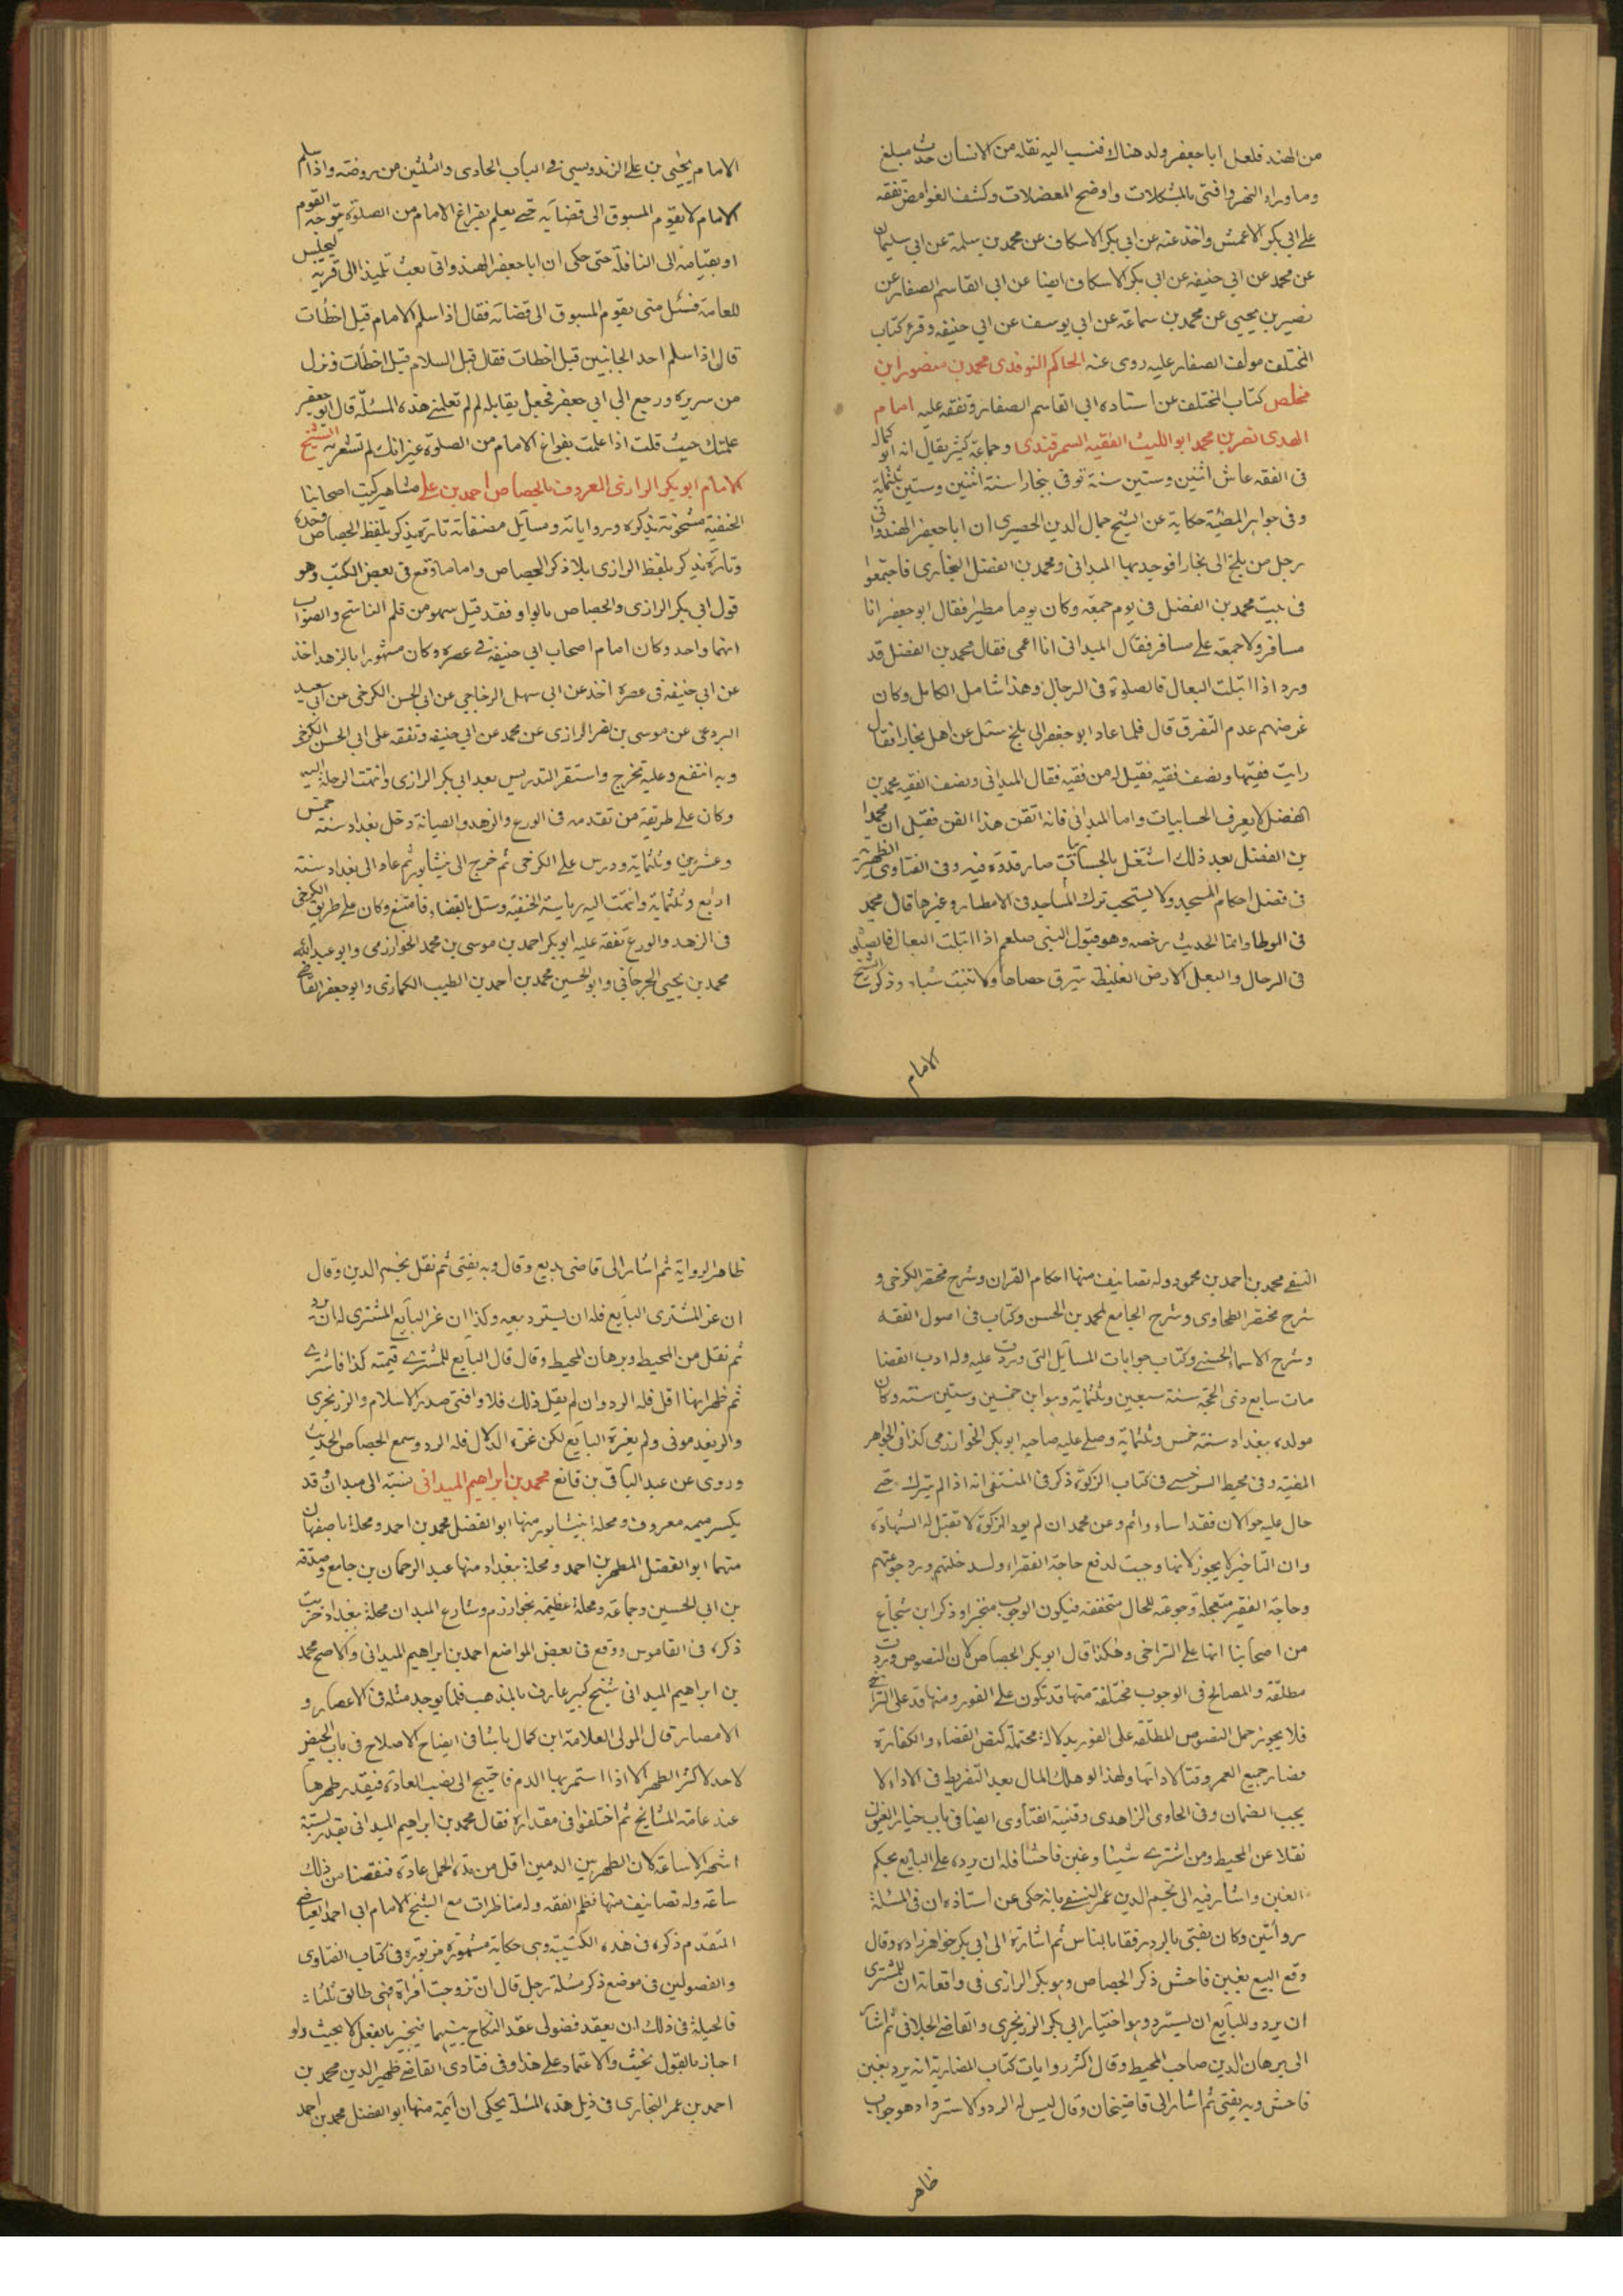 من الهند فلعل ابا جعفر ولد هناك فنسب اليه نقله من الانسان حدث مبلغ
وما وراء النهر وافتى بالمشكلات واوضح المعضلات وكشف الغوامض تفقه
على ابي بكر الاعمش واخذ عنه عن ابي بكر الاسكاف عن محمد بن سلمة عن ابي سليمان
عن محمد عن ابي حنيفة عن ابي بكر الاسكاف ايضا عن ابي القاسم الصفار عن
نصير بن يحيى عن محمد بن سماعة عن ابي يوسف عن ابي حنيفة وقرء كتاب
المختلف مولف الصفار عليه روى عنه الحاكم النوقدى محمد بن منصور ابن
مخلص كتاب المختلف عن استاده ابي القاسم الصفار وتفقه عليه امام
الهدى نصر بن محمد ابو الليث الفقيه السمرقندى وجماعة كثير يقال انه ابو كماله
فى الفقه عاش اثنين وستين سنة توفى ببخارا سنة اثنين وستين وثلثماية
وفى جواهر المضيئة حكاية عن الشيخ جمال الدين الحصيرى ان ابا جعفر الهندوانى
رجل من بلخ الى بخارا فوجد بها الميدانى ومحمد بن الفضل البخارى فاجتمعوا
فى بيت محمد بن الفضل فى يوم جمعة وكان يوما مطيرا فقال ابو جعفر انا
مسافر ولا جمعة على مسافر فقال الميدانى انا اعمى فقال محمد بن الفضل قد
ورد اذا ابتلت النعال فالصلوة فى الرحال وهذا شامل الكامل وكان
غرضهم عدم التفرق قال فلما عاد ابو جعفر الى بلخ سئل عن اهل بخارا فقال
رايت فقيها ونصف فقيه فقيل له من فقيه فقال الميدانى ونصف الفقيه محمد بن
الفضل لا يعرف الحسابيات واما الميدانى فانه اتقن هذا الفن فقيل ان محمدا
بن الفضل بعد ذلك اشتغل بالحسابيات صار قدوة فيه وفى الفتاوى الظهيرية
فى فصل احكام المسجد ولا يستحب ترك المساجد فى الامطار وغيرها قال محمد
فى الموطا واتما الحديث رخصه وهو قول النبى صلعم اذا ابتلت النعال فالصلوة
فى الرحال والنعل الارض الغليظة تبرق حصاها ولا تنبت شيئا وذكر الشيخ
الامام
الامام يحيى بن على الزندويسى فى الباب الحادى والثلثين من روضته واذا سلم
الامام لا يقوم المسبوق الى قضائه حتى يعلم بفراغ الامام من الصلوة بتوجه القوم
او بقيامه الى النافلة حتى حكى ان ابا جعفر الهندوانى بعث تلميذا الى قرية ليجلس
للعامة فسئل متى يقوم المسبوق الى قضائه فقال اذا سلم الامام قيل اخطأت
قال اذا سلم احد الجانبين قيل اخطات فقال قبل السلام قيل اخطأت فنزل
من سريره ورجع الى ابى جعفر فجعل يقابله لم لم تعلمنى هذه المسئلة قال ابو جعفر
علمتك حيث قلت اذا علمت بفراغ الامام من الصلوة غير انك لم تشعر به الشيخ
الامام ابو بكر الرازى المعروف بالجصاص احمد بن على مشاهير كتب اصحابنا
الحنفية مشحونة بذكره ورواياته ومسايل مصنفاته تارة يذكر بلفظ الجصاص وحده
وتارة يذكر بلفظ الرازى بلا ذكر الجصاص واما ما وقع فى بعض الكتب وهو
قول ابى بكر الرازى والجصاص بالواو فقد قيل سهو من قلم الناسخ والصواب
انهما واحد وكان امام اصحاب ابى حنيفة فى عصره وكان مشهورا بالزهد اخذ
عن ابى حنيفة فى عصره اخذ عن ابى سهل الزجاجى عن ابى الحسن الكرخى عن ابى سعيد
البردعى عن موسى بن نصر الرازى عن محمد عن ابى حنيفة وتفقه على ابى الحسن الكرخى
وبه انتفع وعليه تخرج واستقر التدريس بعد ابى بكر الرازى وانتهت الرحلة اليه
وكان على طريقة من تقدمه فى الورع والزهد والصيانة دخل بغداد سنة خمس
وعشرين وثلثماية ودرس على الكرخى ثم خرج الى نيشابور ثم عاد الى بغداد سنة
اربع وثلثماية وانتهت اليه رياسة الحنفية وسئل بالقضاء فامتنع وكان على طريق الكرخى
فى الزهد والورع تفقه عليه ابو بكر احمد بن موسى بن محمد الخوارزمى وابو عبد الله
محمد بن يحيى الجرجانى وابو الحسين محمد بن احمد بن الطيب الكمارى وابو جعفر القاضى
النسفى محمد بن احمد بن محمود وله تصانيف منها احكام القران وشرح مختصر الكرخى و
شرح مختصر الطحاوى وشرح الجامع لمحمد بن الحسن وكتاب فى اصول الفقه
وشرح الاسماء الحسنى وكتاب جوابات المسايل التى وردت عليه وله ادب القضا
مات سابع ذى الحجة سنة سبعين وثلثماية وهو ابن خمسين وستين سنة وكان
مولده ببغداد سنة خمس وثلثماية وصلى عليه صاحبه ابو بكر الخوارزمى كذا فى الجواهر
المضية وفى محيط السرخسى فى كتاب الزكوة ذكر فى المنتقى انه اذا لم يترك حتى
حال عليه حولان فقد اساء واثم وعن محمد ان لم يود الزكوة لا تقبل له الشهادة
وان التاخير لا يجوز لانها وجبت لدفع حاجة الفقراء ولسد خلتهم ورد جوعتهم
وحاجة الفقير متعجلة وجوعته للحال متحققة فيكون الوجوب منجزا وذكر ابن شجاع
من اصحابنا انها على التراخى وهكذا قال ابو بكر الجصاص لان النصوص وردت
مطلقة والمصالح فى الوجوب مختلفة منها قد تكون على الفور ومنها قد على التراخى
فلا يجوز حمل النصوص المطلقة على الفور بدلالة محتملة كنص القضاء والكفارة
فصار جميع العمر وقتا لادائها ولهذا لو هلك المال بعد التفريط فى الاداء لا
يجب الضمان وفى الحاوى الزاهدى وقنية الفتاوى ايضا فى باب خيار المغبون
نقلا عن المحيط ومن اشترى شيئا وغبن فاحشا فله ان يرده على البايع بحكم
الغبن واشار فيه الى نجم الدين عمر النسفى بانه حكى عن استاذه ان فى المسئلة
روايتين وكان يفتى بالرد رفقا بالناس ثم اشارة الى ابى بكر خواهر زاده وقال
وقع البيع بغبن فاحش ذكر الجصاص وهو بكر الرازى فى واقعاته ان للمشترى
ان يرد وللبايع ان يسترد وهو اختيار ابى بكر الزرنجرى والقاضى الجلابى ثم اشار
الى برهان الدين صاحب المحيط وقال اكثر روايات كتاب المضاربة انه يرد بغبن
فاحش وبه يفتى ثم اشار الى قاضيخان وقال ليس له الرد والاسترداد هو جواب
ظاهر
ظاهر الرواية ثم اشار الى قاضى بديع وقال وبه يفتى ثم نقل نجم الدين وقال
ان غر المشترى البايع فله ان يسترد بيعه وكذا ان غر البايع المشترى له ان يرد
ثم نقل من المحيط وبرهان المحيط وقال قال البايع للمشترى قيمته كذا فاشترى
ثم ظهر انها اقل فله الرد وان لم يقل ذلك فلا وافتى صدر الاسلام والزرنجرى
والريغدمونى ولم يغره البايع لكن غره الدلال فله الرد وسمع الجصاص الحديث
وروى عن عبد الباقى بن قانع محمد بن ابراهيم الميدانى نسبة الى ميدان وقد
يكسر ميمه معروف ومحلة بنيشابور منها ابو الفضل محمد بن احمد ومحلة باصفهان
منهما ابو الفضل المطهر بن احمد ومحلة ببغداد منها عبد الرحمان بن جامع وصدقة
بن ابى الحسين وجماعة ومحلة عظيمة بخوارزم وشارع الميدان محلة ببغداد خربت
ذكره فى القاموس ووقع فى بعض المواضع احمد بن ابراهيم الميدانى والاصح محمد
بن ابراهيم الميدانى شيخ كبير عارف بالمذهب قلما يوجد مثله فى الاعصار و
الامصار قال المولى العلامة ابن كمال باشا فى ايضاح الاصلاح فى باب الحيض
لا حد لاكثر الطهر الا اذا استمر بها الدم فاحتيج الى نصب العادة فيقدر طهرها
عند عامة المشايخ ثم اختلفوا فى مقداره فقال محمد بن ابراهيم الميدانى يقدر بستة
اشهر الا ساعة لان الطهر بين الدمين اقل من مدة الحمل عادة فنقصنا من ذلك
ساعة وله تصانيف منها نظم الفقه وله مناظرات مع الشيخ الامام ابى احمد العياضى
المتقدم ذكره فى هذه الكتيبة وهى حكاية مشهورة مزبورة فى كتاب الفتاوى
والفصولين فى موضع ذكر مسئلة رجل قال ان تزوجت امراة فهى طالق ثلثا :
فالحيلة فى ذلك ان يعقد فضولى عقد النكاح بينهما فيجيز بالفعل لا يحنث ولو
اجاز بالقول يحنث والاعتماد على هذا وفى فتاوى القاضى ظهير الدين محمد بن
احمد بن عمر البخارى فى ذيل هذه المسئلة يحكى ان ائمة منها ابو الفضل محمد بن احمد